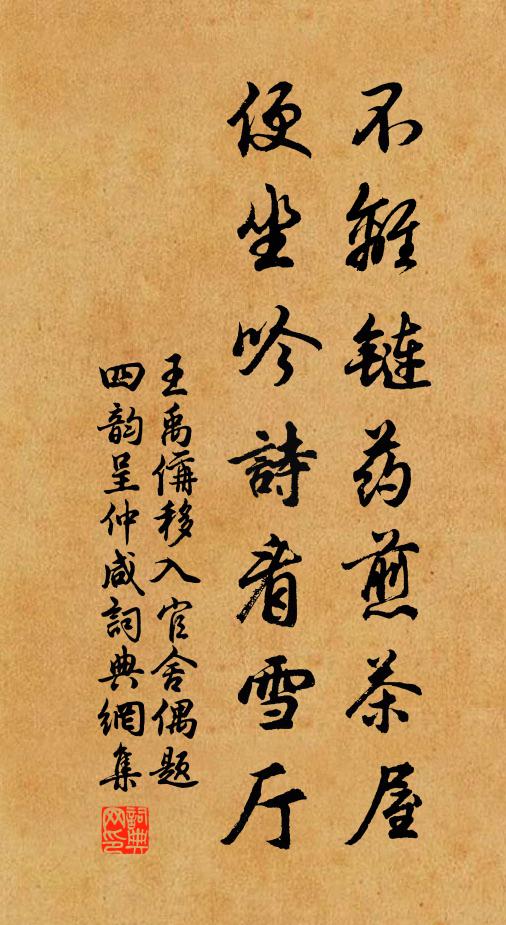 不離鏈药煎茶屋
便坐吟詩看雪厅
王禹偁移入官舍偶题
四韵呈仲咸詞典網集
詞典网印